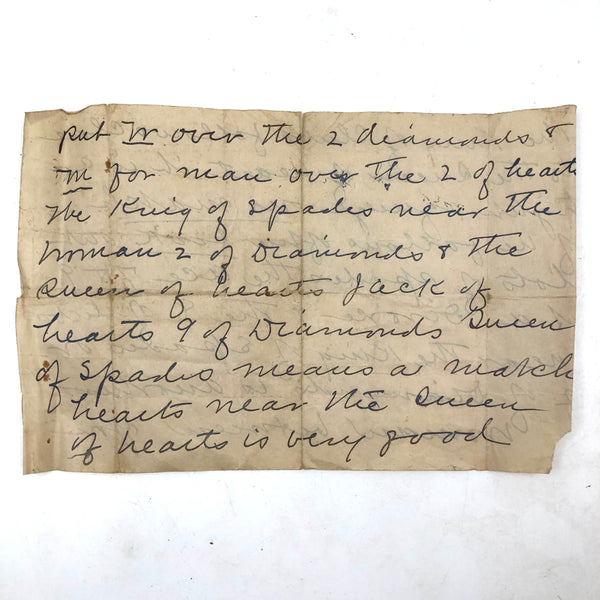 put W over the 2 diamonds &
m for man over the 2 of hearts
The King of Spades near the
woman 2 of Diamonds & the
Queen of hearts Jack of
hearts 9 of Diamonds Queen
of Spades means a match
hearts near the Queen
of hearts is very good